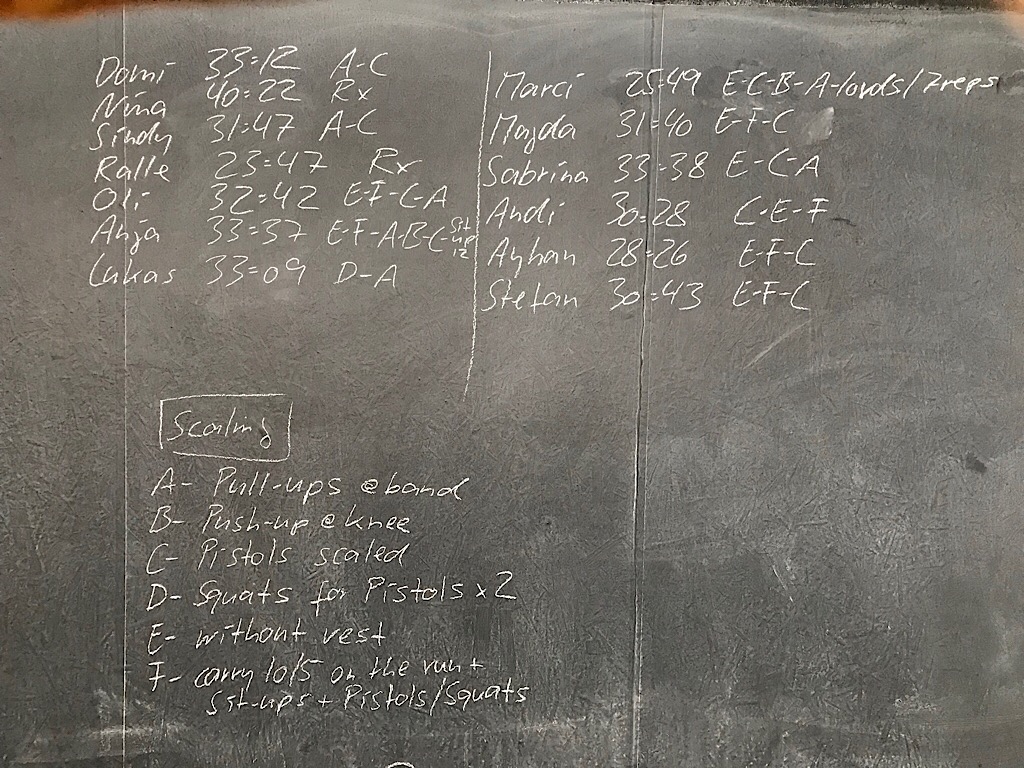 Domi 33:12 A-C
Nina 40:22 Rx
Sindy 31:47 A-C
Ralle 23:47 Rx
Oli 32:42 E-F-C-A
Anja 33:37 E-F-A-B-C-Sit-up 12
Lukas 33:09 D-A
Marci 25:49 E-C-B-A-/7reps
Majda 31:40 E-F-C
Sabrina 33:38 E-C-A
Andi 30:28 C-E-F
Ayhan 28:26 E-F-C
Stefan 30:43 E-F-C
Scaling
A- Pull-ups @band
B- Push-up @knee
C- Pistols scaled
D- Squats for Pistols x2
E- without vest
F- carry 10/5 on the run +
Sit-ups + Pistols/Squats